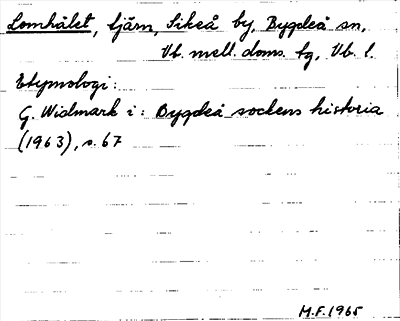 Lomhålet, tjärn, Sikeå by, Bygdeå sn,
Vb. mell. doms. tg, Vb. l.
Etymologi:
G. Widmark i: Bygdeå sockens historia
(1963), s. 67
M.F. 1965